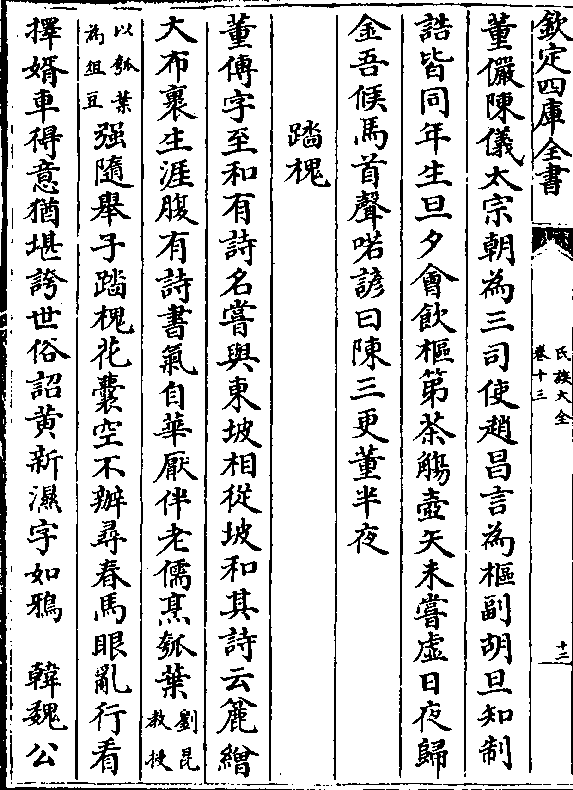 欽定四庫全書
氏族大全
卷十三
十三
董儼陳儀太宗朝為三司使趙昌言為樞副胡旦知制
誥皆同年生旦夕會飲樞第茶觴壺矢未嘗虛日夜歸
金吾候馬首聲喏諺曰陳三更董半夜
踏槐
董傅字至和有詩名嘗與東坡相從坡和其詩云麄繒
大布裹生涯腹有詩書氣自華厭伴老儒烹瓠葉劉昆教授
以瓠葉為俎豆强隨舉子踏槐花囊空不辦尋春馬眼亂行看
擇婿車得意猶堪誇世俗詔黄新濕字如鴉 韓魏公